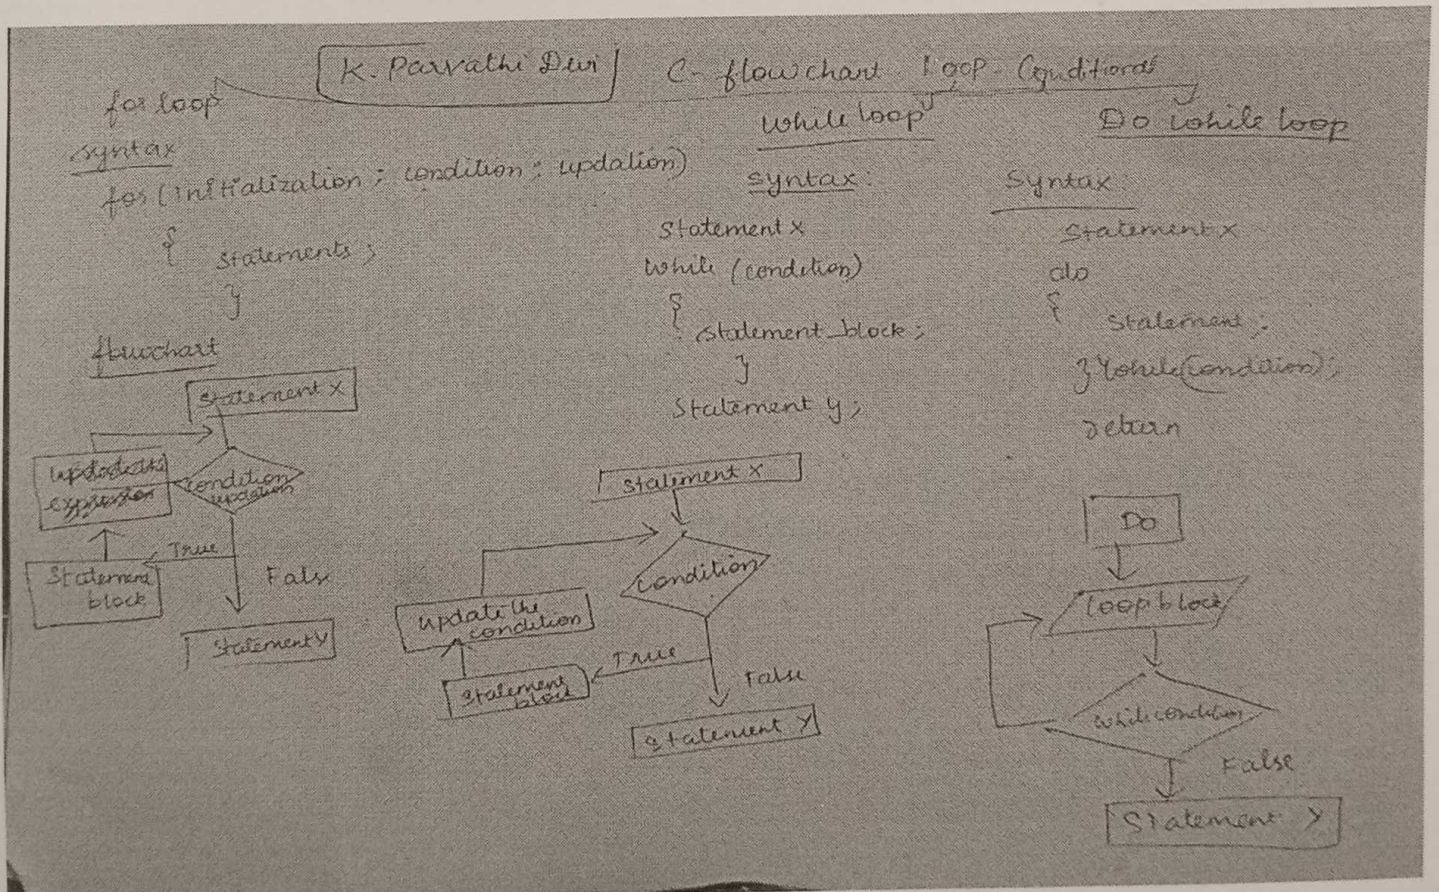 K. Parvathi Devi
C- flowchart loop- Conditions
for loop
syntax
for (initialization ; condition ; updation)
{
statements ;
}
flowchart
Statement X
condition
updation
expression
True
Statement
block
False
Statement Y
while loop
syntax:
Statement x
While (condition)
{
statement_block ;
}
Statement y ;
Statement X
Condition
update the
condition
True
Statement
block
False
Statement Y
Do while loop
Syntax
Statement x
do
{
Statement ;
} While (condition) ;
return
Do
loop block
while condition
False
Statement Y